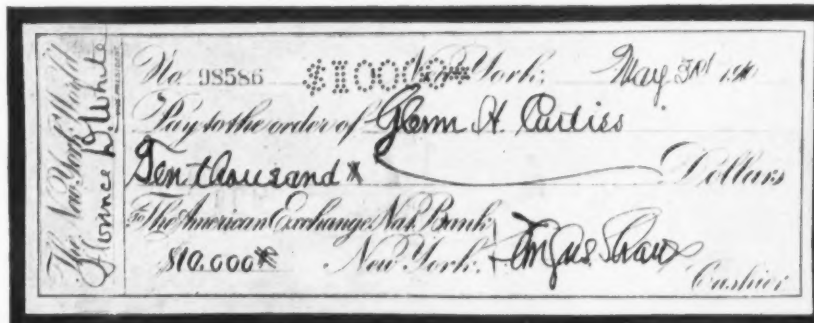 The New York World
Florence D. White
No 98586 $10000** New York, May 31st 1910
Pay to the order of Glenn H. Curtiss
Ten thousand * Dollars
To The American Exchange Nat. Bank
$10.000* New York. Angus Shaw
Cashier